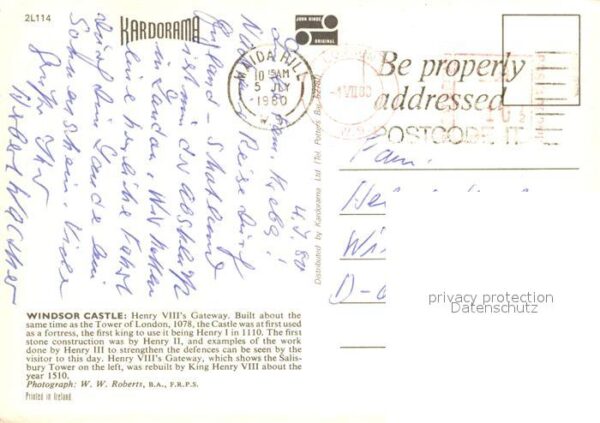 2L114
KARDORAMA
JOHN HINDE
ORIGINAL
MAIDA HILL
10 15AM
5 JLY
1980
W
Be properly
addressed
POSTCODE IT
4.7.80
Fam. Krebs!
Reise durch
England - Schottland
ist mit
in London. Wir hatten
eine herrliche Fahrt
durch Lande bei
Sonnenschein. Viele
Grüße Ihr
Fam.
Wi
D-
Distributed by Kardorama Ltd (Tel. Potters Bar
privacy protection
Datenschutz
WINDSOR CASTLE: Henry VIII's Gateway. Built about the
same time as the Tower of London, 1078, the Castle was at first used
as a fortress, the first king to use it being Henry I in 1110. The first
stone construction was by Henry II, and examples of the work
done by Henry III to strengthen the defences can be seen by the
visitor to this day. Henry VIII's Gateway, which shows the Salis-
bury Tower on the left, was rebuilt by King Henry VIII about the
year 1510.
Photograph: W. W. Roberts, B.A., F.R.P.S.
Printed in Ireland